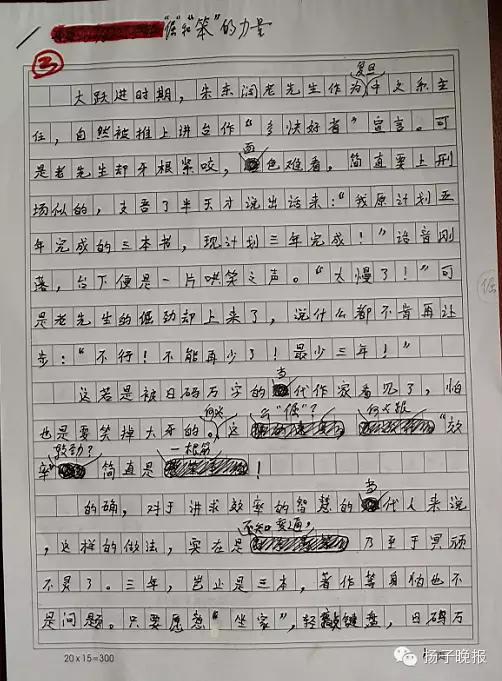 “倔”和“笨”的力量
3
复旦
大跃进时期，朱东润老先生作为中文系主
任，自然被推上讲台作“多快好省”宣言。可
面
是老先生却牙根紧咬，色难看，简直要上刑
场似的，支吾了半天才说出话来：“我原计划五
年完成的三本书，现计划三年完成！”话音刚
落，台下便是一片哄笑之声。“太慢了！”可
倔
是老先生的倔劲却上来了，说什么都不肯再让
步：“不行！不能再少了！最少三年！”
当
这若是被日码万字的代作家看见了，怕
何必 么“倔”？ 何必狠
也是要笑掉大牙的。这 “效
效劲？ 一根筋
率” 简直是！
当
的确，对于讲求效率的智慧的代人来说
不知变通，
，这样的做法，实在是乃至于冥顽
不灵了。三年，岂止是三本，著作等身怕也不
是问题。只要愿意“坐家”，轻敲键盘，日码万
20×15=300
杨子晚报